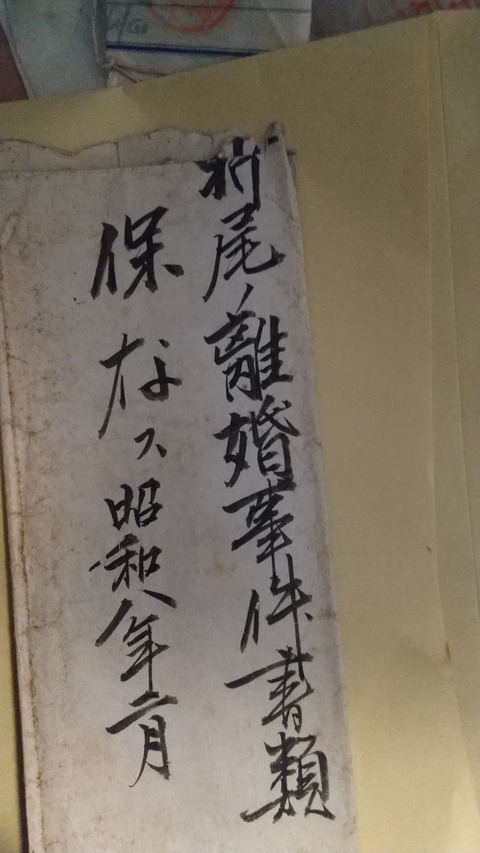 折尾ノ離婚事件書類
保存ス昭和八年二月